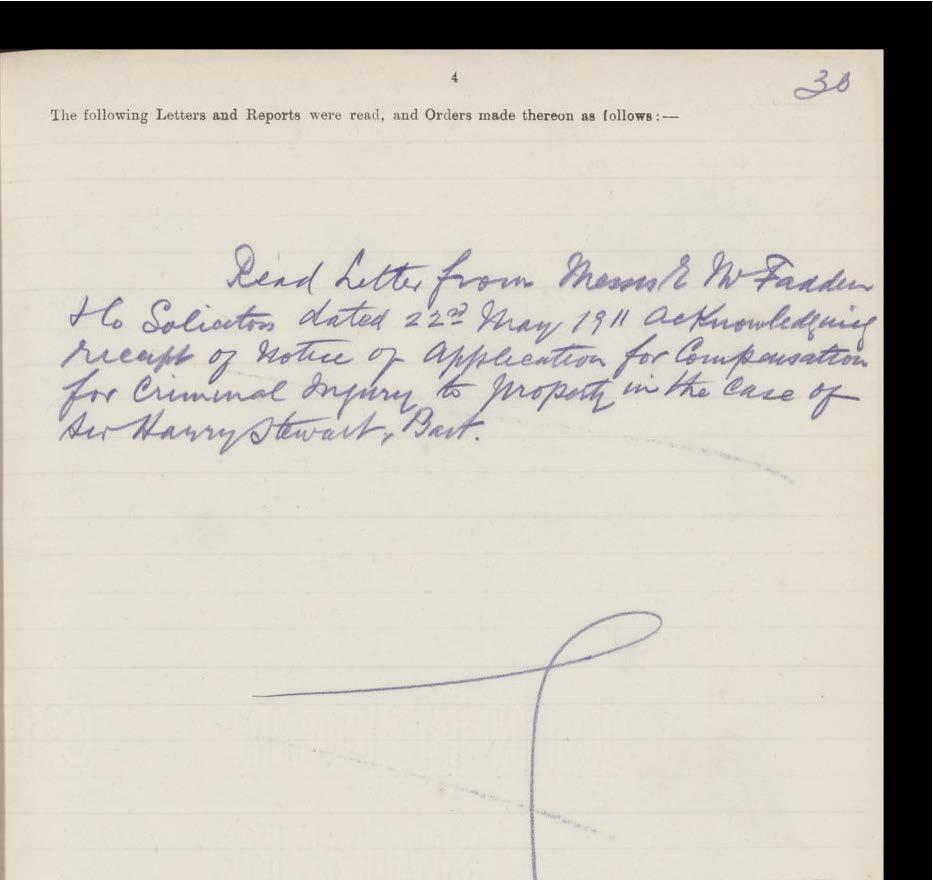 4
30
The following Letters and Reports were read, and Orders made thereon as follows:—
Read Letter from Messrs E McFadden
& Co Solicitors dated 22nd May 1911 acknowledging
receipt of notice of Application for Compensation
for Criminal Injury to property in the case of
Sir Harry Stewart, Bart.